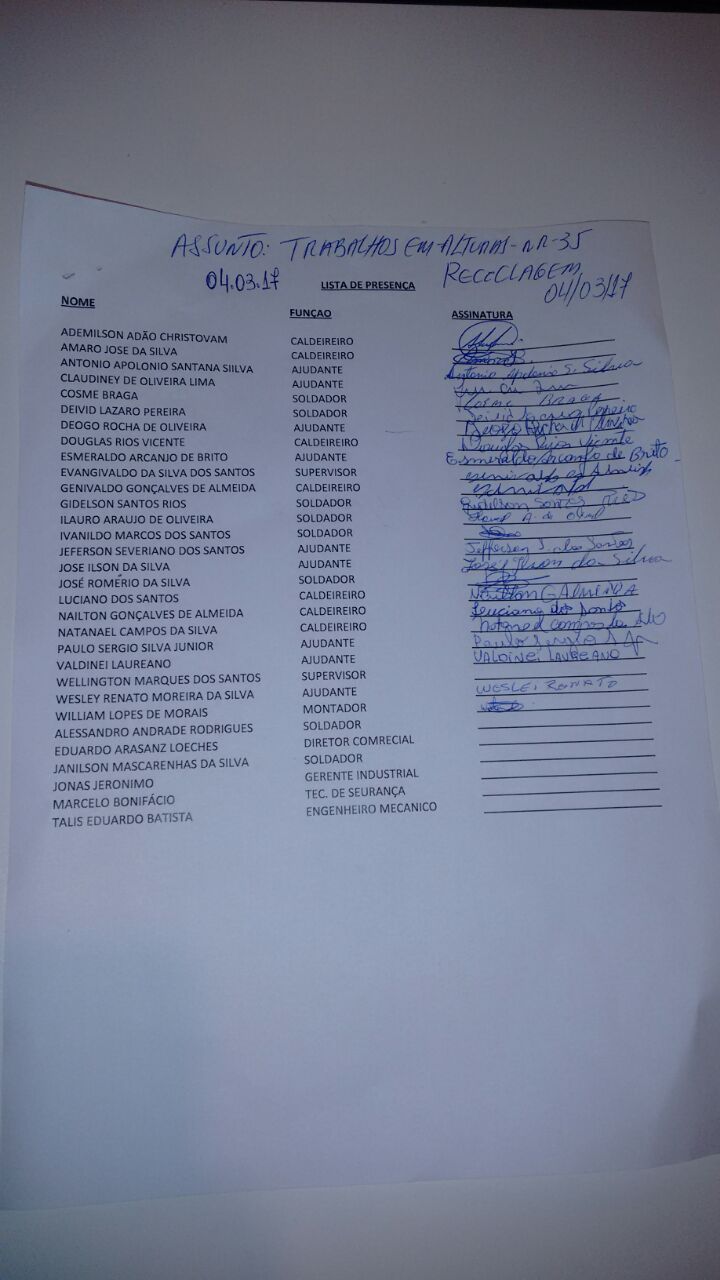 ASSUNTO: TRABALHOS EM ALTURAS - NR-35
04.03.17 LISTA DE PRESENÇA RECICLAGEM
04/03/17
NOME FUNÇAO ASSINATURA
ADEMILSON ADÃO CHRISTOVAM CALDEIREIRO
AMARO JOSE DA SILVA CALDEIREIRO
ANTONIO APOLONIO SANTANA SIILVA AJUDANTE Antonio Apolonio S. Silva
CLAUDINEY DE OLIVEIRA LIMA AJUDANTE
COSME BRAGA SOLDADOR COSME BRAGA
DEIVID LAZARO PEREIRA SOLDADOR
DEOGO ROCHA DE OLIVEIRA AJUDANTE
DOUGLAS RIOS VICENTE CALDEIREIRO Douglas Rios Vicente
ESMERALDO ARCANJO DE BRITO AJUDANTE Esmeraldo Arcanjo de Brito
EVANGIVALDO DA SILVA DOS SANTOS SUPERVISOR
GENIVALDO GONÇALVES DE ALMEIDA CALDEIREIRO
GIDELSON SANTOS RIOS SOLDADOR
ILAURO ARAUJO DE OLIVEIRA SOLDADOR
IVANILDO MARCOS DOS SANTOS SOLDADOR
JEFERSON SEVERIANO DOS SANTOS AJUDANTE Jefferson S. dos Santos
JOSE ILSON DA SILVA AJUDANTE Jose Ilson da Silva
JOSÉ ROMÉRIO DA SILVA SOLDADOR
LUCIANO DOS SANTOS CALDEIREIRO Nailton G ALMEIDA
NAILTON GONÇALVES DE ALMEIDA CALDEIREIRO Luciano dos Santos
NATANAEL CAMPOS DA SILVA CALDEIREIRO
PAULO SERGIO SILVA JUNIOR AJUDANTE Paulo Sergio S
VALDINEI LAUREANO AJUDANTE VALDINEI LAUREANO
WELLINGTON MARQUES DOS SANTOS SUPERVISOR
WESLEY RENATO MOREIRA DA SILVA AJUDANTE WESLEI RENATO
WILLIAM LOPES DE MORAIS MONTADOR
ALESSANDRO ANDRADE RODRIGUES SOLDADOR
EDUARDO ARASANZ LOECHES DIRETOR COMRECIAL
JANILSON MASCARENHAS DA SILVA SOLDADOR
JONAS JERONIMO GERENTE INDUSTRIAL
MARCELO BONIFÁCIO TEC. DE SEURANÇA
TALIS EDUARDO BATISTA ENGENHEIRO MECANICO